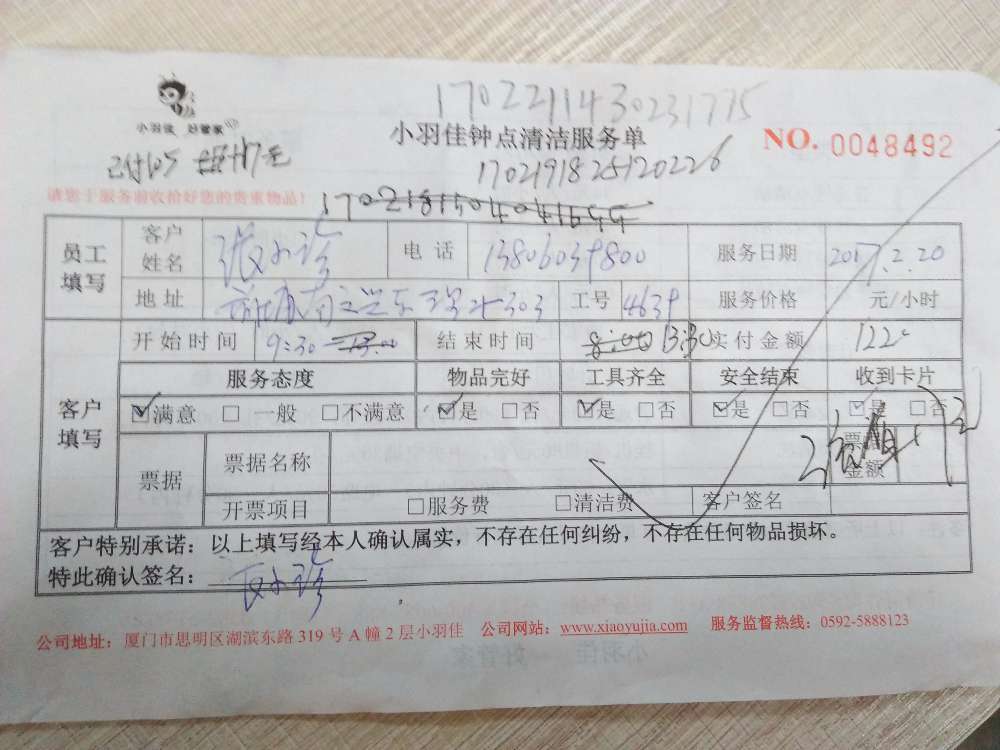 1702211430231775
小羽佳 好管家
小羽佳钟点清洁服务单
NO. 0048492
1702191825120226
请您于服务前收拾好您的贵重物品！
员工填写 客户姓名 张小珍 电话 13806039800 服务日期 2017.2.20
地址 303 工号 4639 服务价格 元/小时
客户填写 开始时间 9:30 结束时间 13:30 实付金额 122
服务态度 物品完好 工具齐全 安全结束 收到卡片
☑满意 □一般 □不满意 ☑是 □否 ☑是 □否 ☑是 □否 ☑是 □否
票据 票据名称 票据金额
开票项目 □服务费 □清洁费 客户签名
客户特别承诺：以上填写经本人确认属实，不存在任何纠纷，不存在任何物品损坏。
特此确认签名：
公司地址：厦门市思明区湖滨东路 319 号 A 幢 2 层小羽佳 公司网站：www.xiaoyujia.com 服务监督热线：0592-5888123